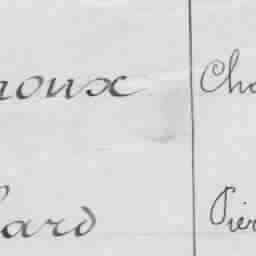 noux Cha
lard Pier